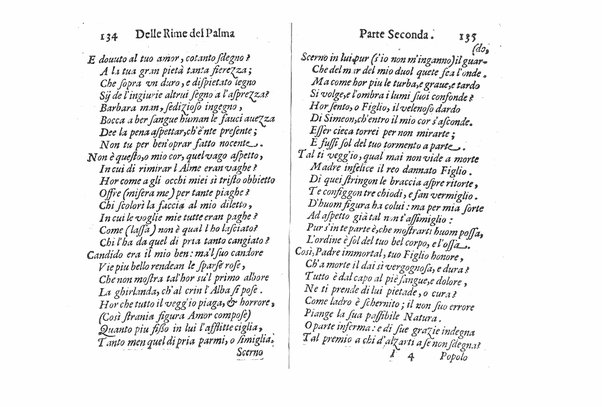 134 Delle Rime del Palma
E douuto al tuo amor, cotanto sdegno?
A la tua gran pietà tanta fierezza;
Che sopra vn duro, e dispietato legno
Sij de l'ingiurie altrui segno a l'asprezza?
Barbara man, sedizioso ingegno,
Bocca a ber sangue human le fauci auezza
Dee la pena aspettar, ch'è'nte presente;
Non tu per ben'oprar fatto nocente.
Non è questo, o mio cor, quel vago aspetto,
In cui di rimirar l'Alme eran vaghe?
Hor come a gli occhi miei sì tristo obbietto
Offre (misera me) per tante piaghe?
Chi scolorì la faccia al mio diletto,
In cui le voglie mie tutte eran paghe?
Come (lassa) non è qual l'ho lasciato?
Chi l'ha da quel di pria tanto cangiato?
Candido era il mio ben: ma'l suo candore
Vie piu bello rendean le sparse rose,
Che non mostra tal'hor su'l primo albore
La ghirlanda, ch'al crin l'Alba si pose.
Hor che tutto il veggio piaga, & horrore,
(Così strania figura Amor compose)
Quanto piu fisso in lui l'afflitte ciglia,
Tanto men quel di pria parmi, o simiglia.
Scerno
Parte Seconda. 135
(do,
Scerno in lui pur (s'io non m'inganno) il guar-
Che del mar del mio duol quete fea l'onde.
Ma come hor piu le turba, e graue, e tardo
Si volge, e l'ombra i lumi suoi confonde?
Hor sento, o Figlio, il velenoso dardo
Di Simeon, ch'entro il mio cor s'asconde.
Esser cieca torrei per non mirarte;
E fussi sol del tuo tormento a parte.
Tal ti veggio, qual mai non vide a morte
Madre infelice il reo dannato Figlio.
Di quei stringon le braccia aspre ritorte,
Te configgon tre chiodi, e fan vermiglio.
D'huom figura ha colui: ma per mia sorte
Ad aspetto già tal non t'assimiglio:
Pur s'in te parte è, che mostrarti huom possa,
L'ordine è sol del tuo bel corpo, e l'ossa.
Così, Padre immortal, tuo Figlio honore,
Ch'a morte il dai sì vergognosa, e dura?
Tutto è dal capo al piè sangue, e dolore,
Ne ti prende di lui pietade, o cura?
Come ladro è schernito; il non suo errore
Piange la sua passibile Natura.
O parte inferma: e di sue grazie indegna
Tal premio a chi d'alzarti a se non sdegna?
I 4 Popolo